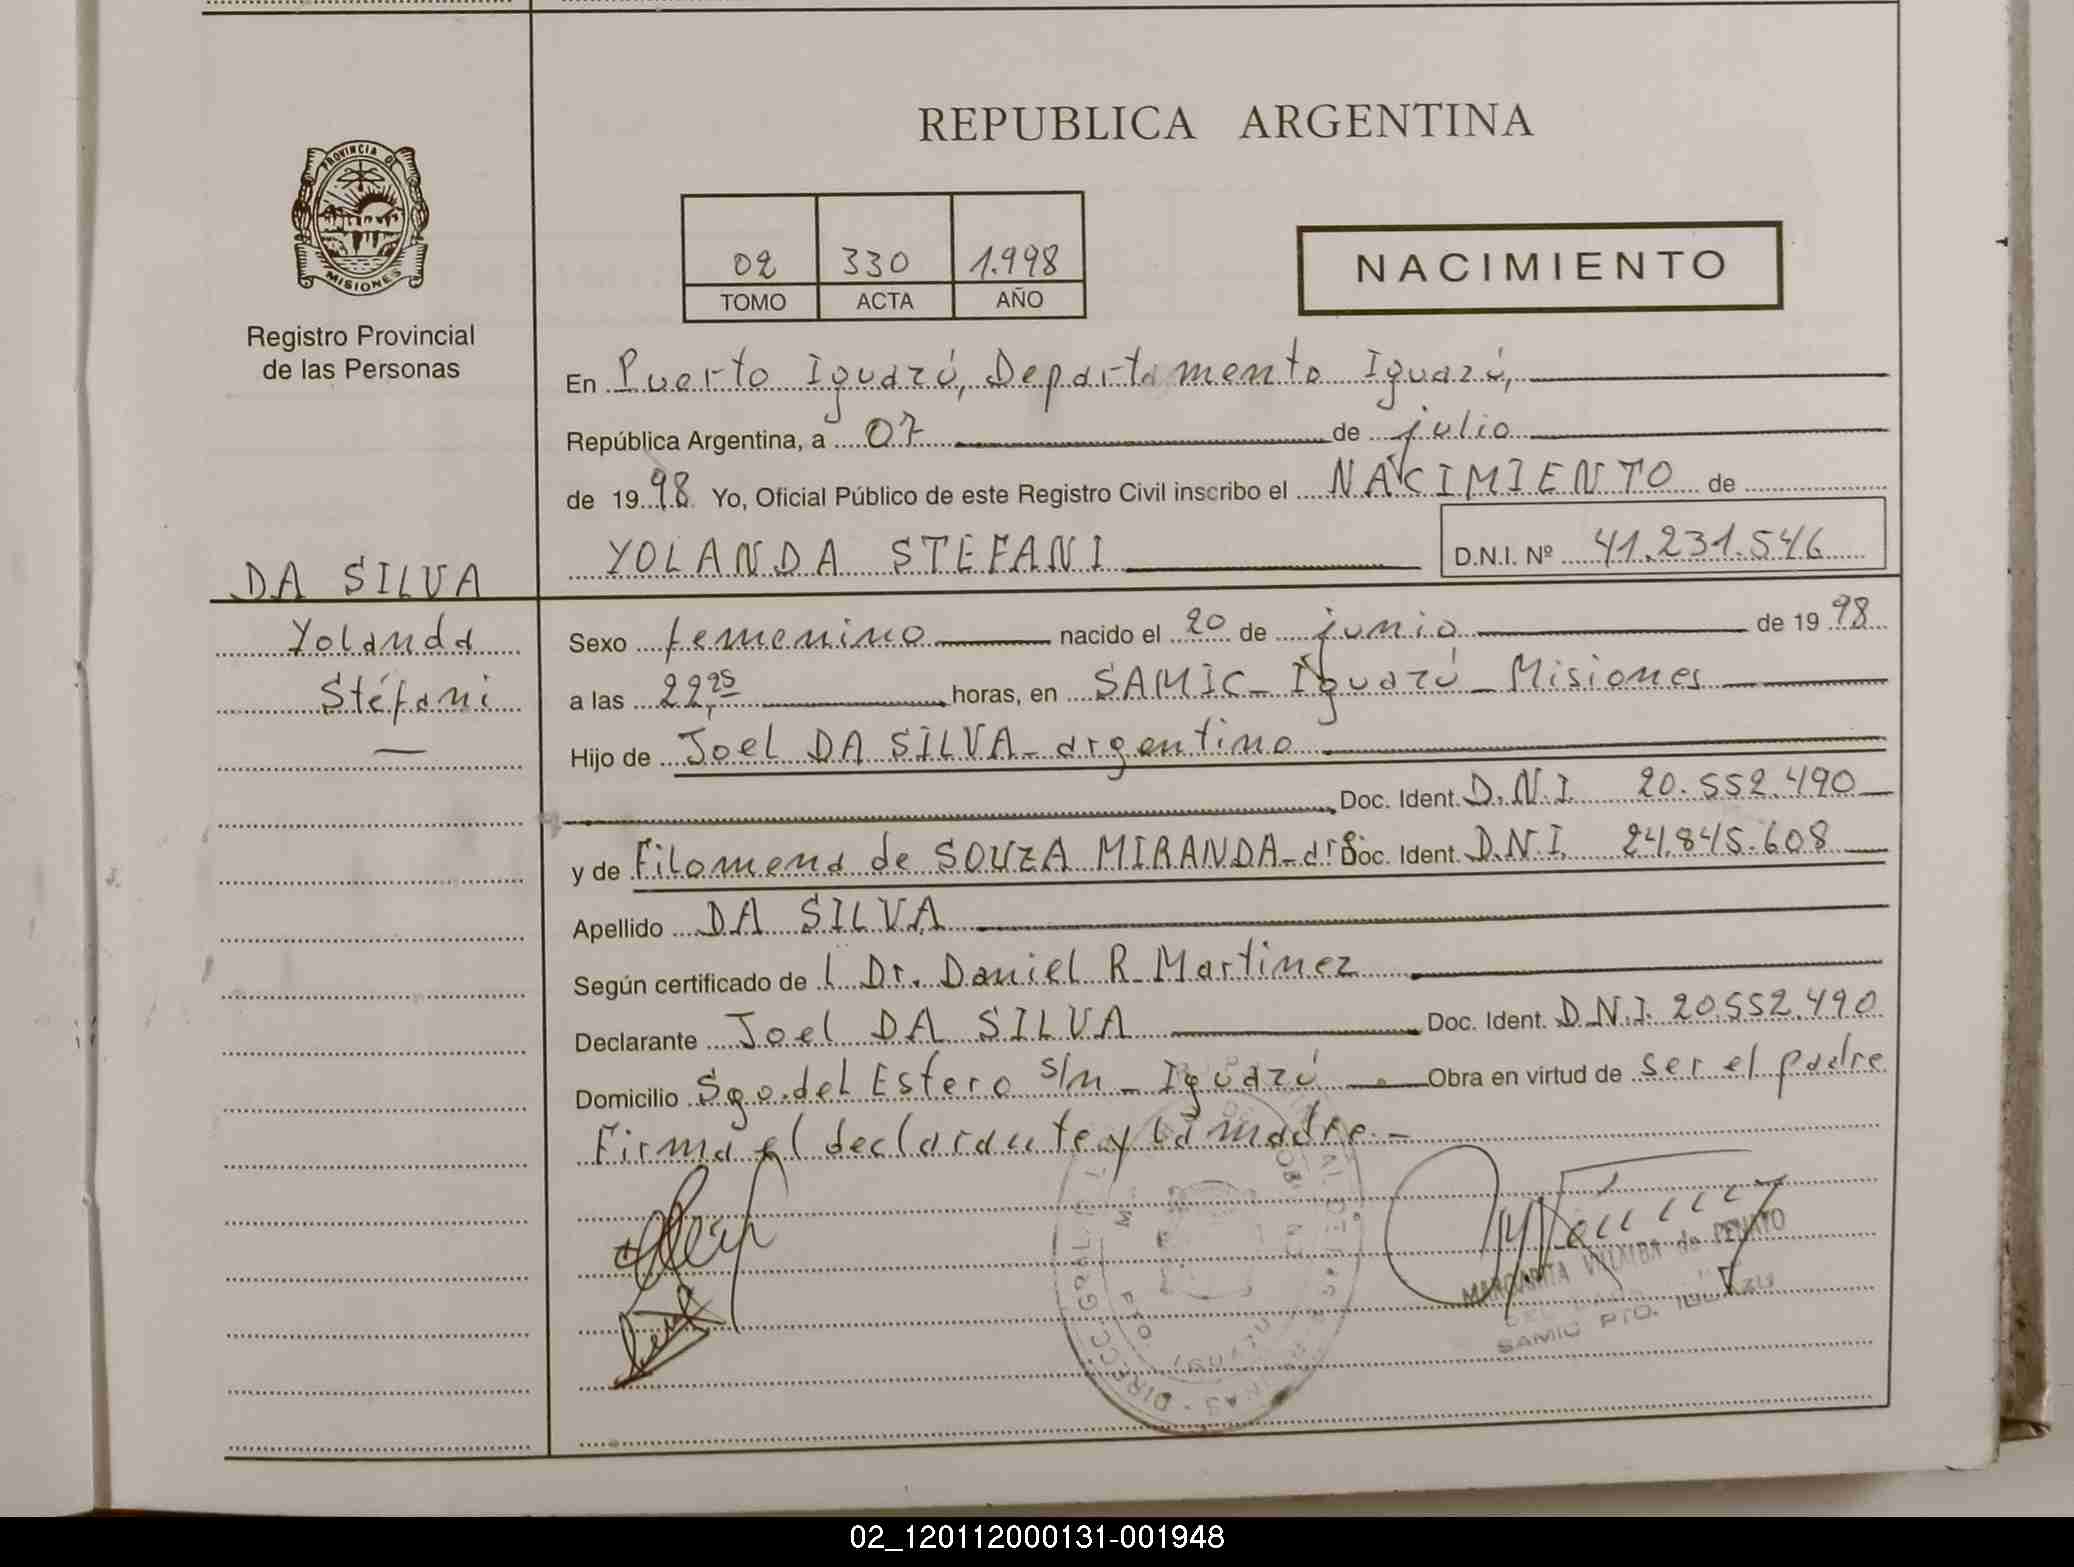 REPUBLICA ARGENTINA
PROVINCIA DE
MISIONES
Registro Provincial
de las Personas
02 330 1.998
TOMO ACTA AÑO
NACIMIENTO
En Puerto Iguazú, Departamento Iguazú,
República Argentina, a 07 de julio
de 1998 Yo, Oficial Público de este Registro Civil inscribo el NACIMIENTO de
YOLANDA STEFANI D.N.I. Nº 41.231.546
DA SILVA
Yolanda
Stéfani
Sexo femenino nacido el 20 de junio de 1998
a las 22,25 horas, en SAMIC - Iguazú - Misiones
Hijo de Joel DA SILVA - argentino
Doc. Ident. D.N.I. 20.552.490
y de Filomena de SOUZA MIRANDA - arg Doc. Ident. D.N.I. 24.845.608
Apellido DA SILVA
Según certificado de l Dr. Daniel R. Martinez
Declarante Joel DA SILVA Doc. Ident. D.N.I. 20.552.490
Domicilio Sgo. del Estero s/n - Iguazú Obra en virtud de ser el padre
Firma el declarante y la madre.-
MARGARITA VILLALBA de PENAYO
SAMIC PTO. IGUAZU
02_120112000131-001948